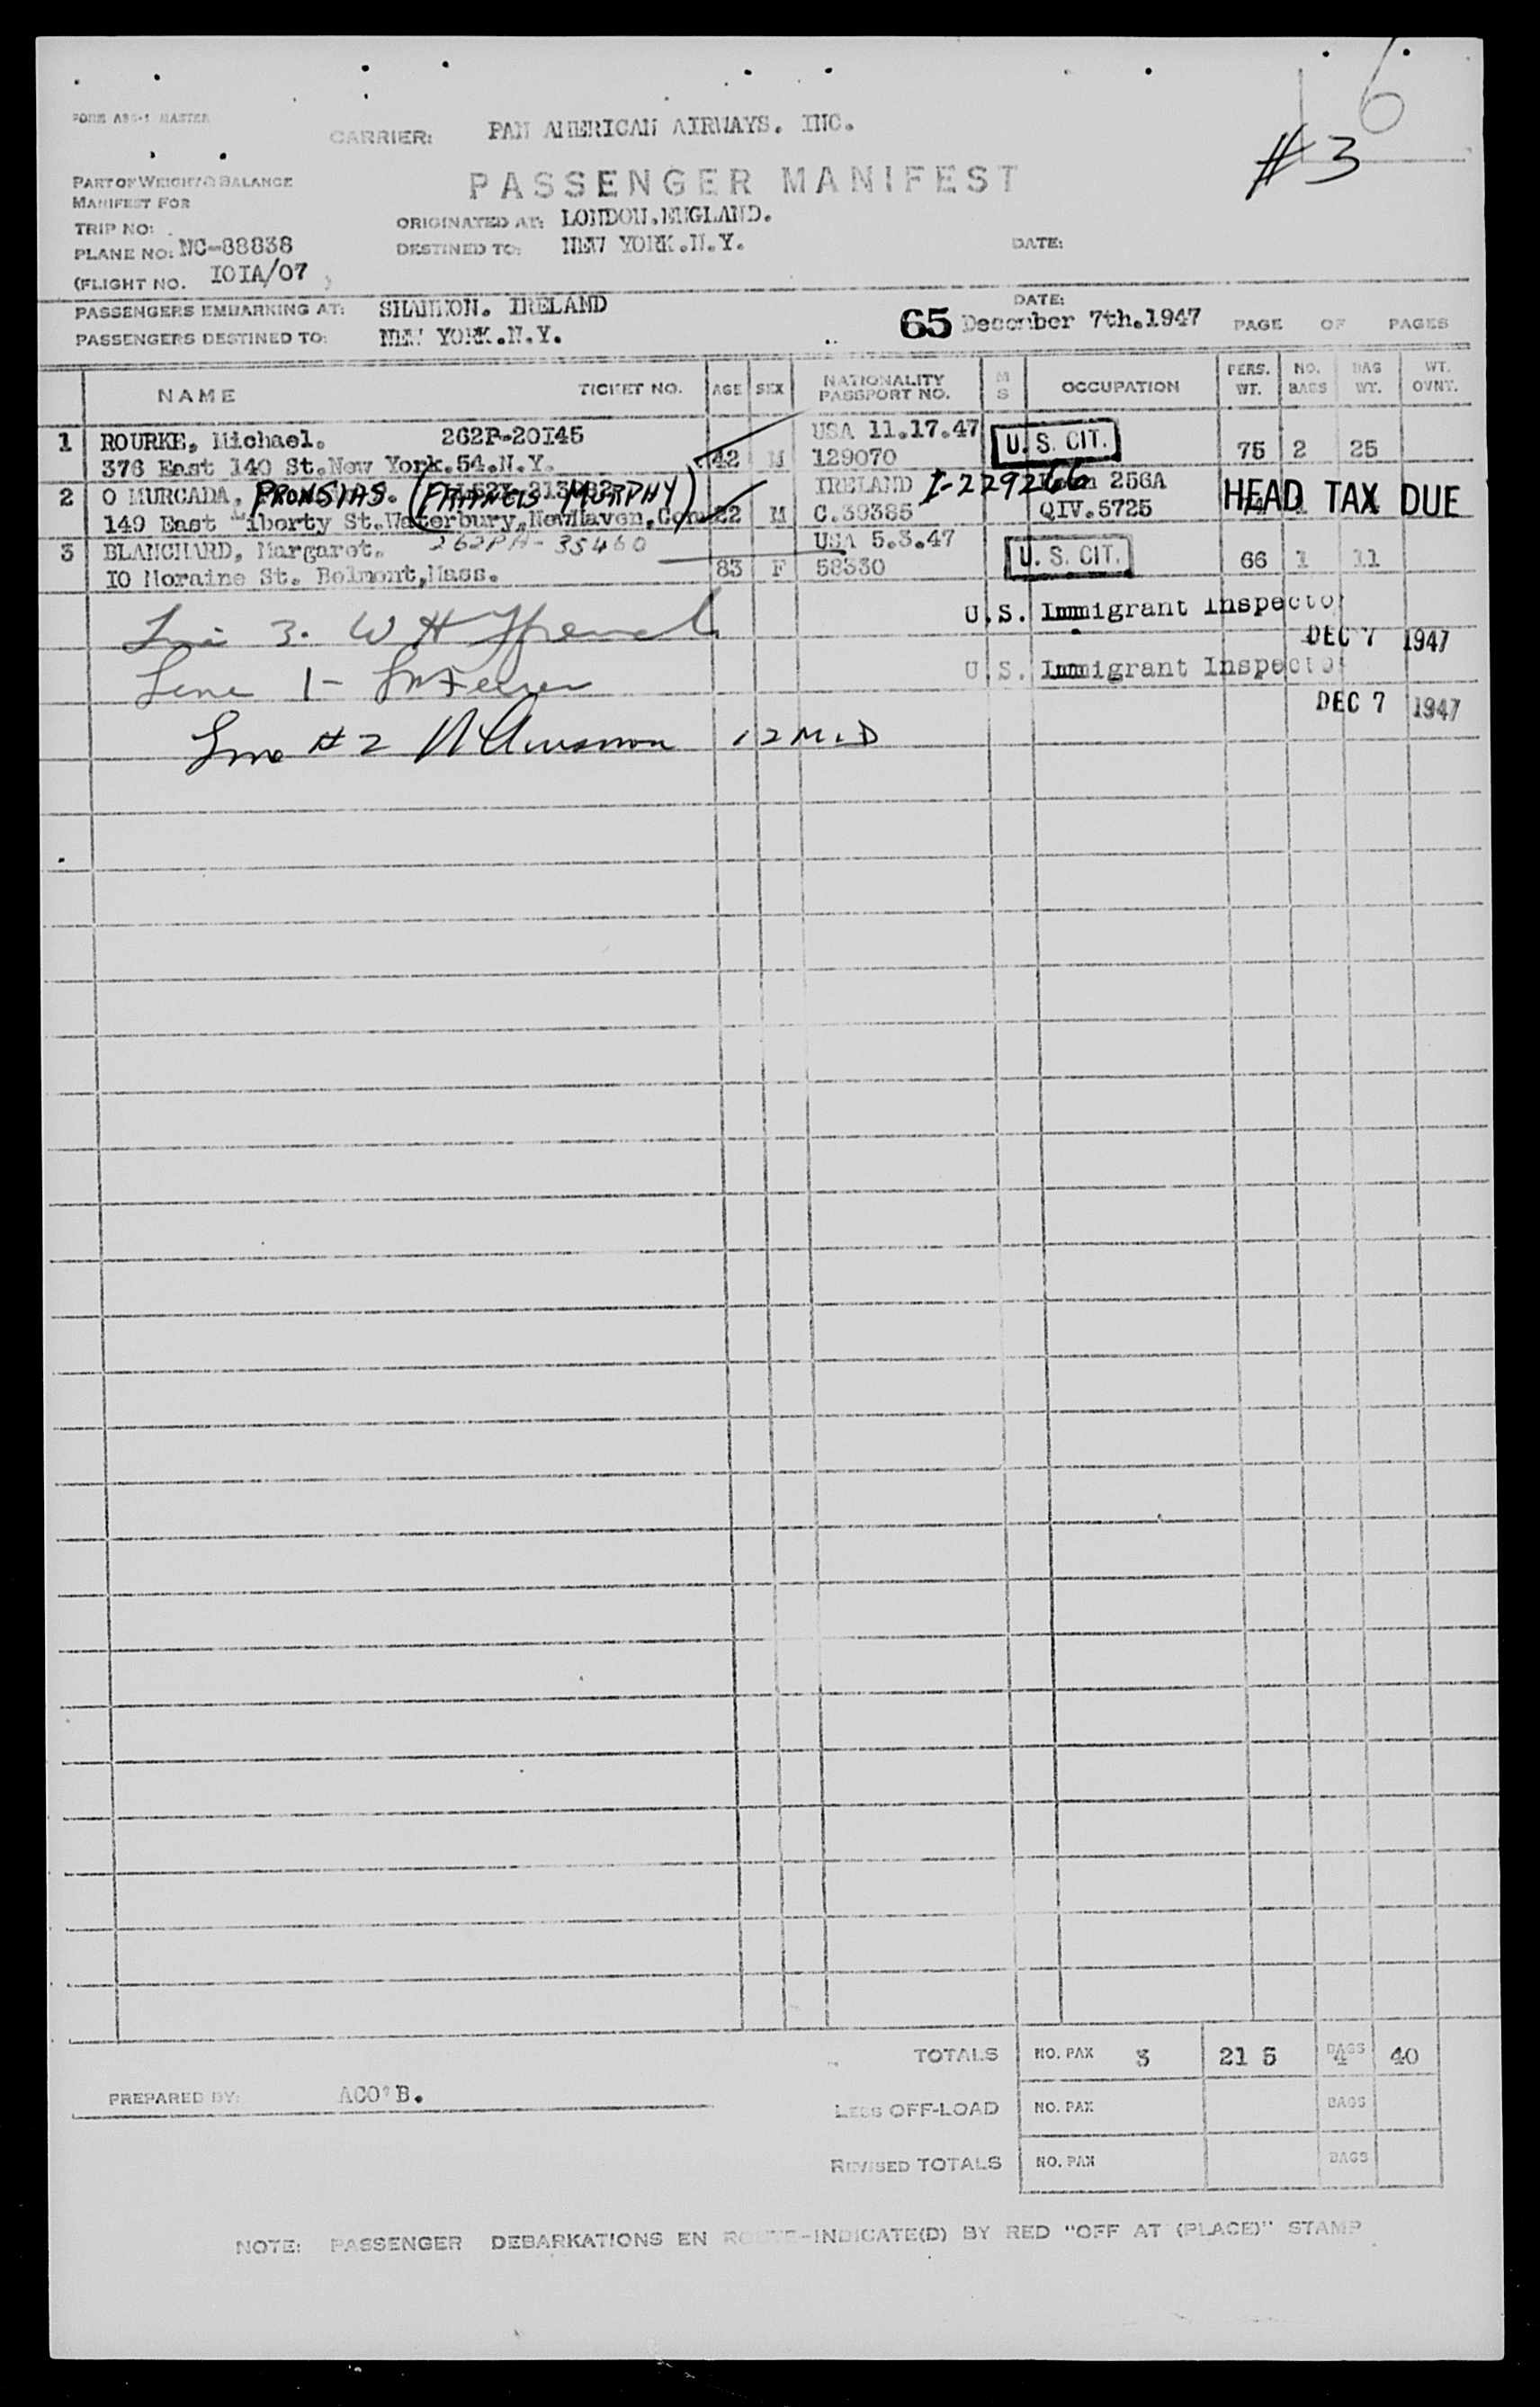 6
# 3
FORM ABS-1 MASTER
CARRIER: PAN AMERICAN AIRWAYS. INC.
PASSENGER MANIFEST
PART OF WEIGHT & BALANCE
MANIFEST FOR
TRIP NO:
ORIGINATED AT: LONDON.ENGLAND.
PLANE NO: NC-88838
DESTINED TO: NEW YORK.N.Y.
DATE:
(FLIGHT NO. IOIA/07 )
PASSENGERS EMBARKING AT: SHANNON. IRELAND
DATE:
65 December 7th.1947
PAGE OF PAGES
PASSENGERS DESTINED TO: NEW YORK.N.Y.
NAME TICKET NO. AGE SEX NATIONALITY PASSPORT NO. M S OCCUPATION PERS. WT. NO. BAGS BAG WT. WT. OVNT.
1 ROURKE, Michael. 262P-20I45 USA 11.17.47 U. S. CIT.
376 East 140 St.New York.54.N.Y. 42 M 129070 75 2 25
2 O MURCADA. PRONSIAS. (FRANCIS MURPHY) IRELAND I-229266 256A HEAD TAX DUE
149 East Liberty St.Waterbury,NewHaven,Con 22 M C.39385 QIV.5725
3 BLANCHARD, Margaret. 262PA-35460 USA 5.3.47 U. S. CIT.
IO Moraine St. Belmont,Mass. 83 F 58330 66 1 11
U.S. Immigrant Inspector
Line 3. W H
DEC 7 1947
U.S. Immigrant Inspector
Line 1-
DEC 7 1947
Line # 2
TOTALS NO. PAX 3 21 5 BAGS 4 40
PREPARED BY: ACO'B.
LESS OFF-LOAD NO. PAX BAGS
REVISED TOTALS NO. PAX BAGS
NOTE: PASSENGER DEBARKATIONS EN ROUTE-INDICATE(D) BY RED "OFF AT (PLACE)" STAMP